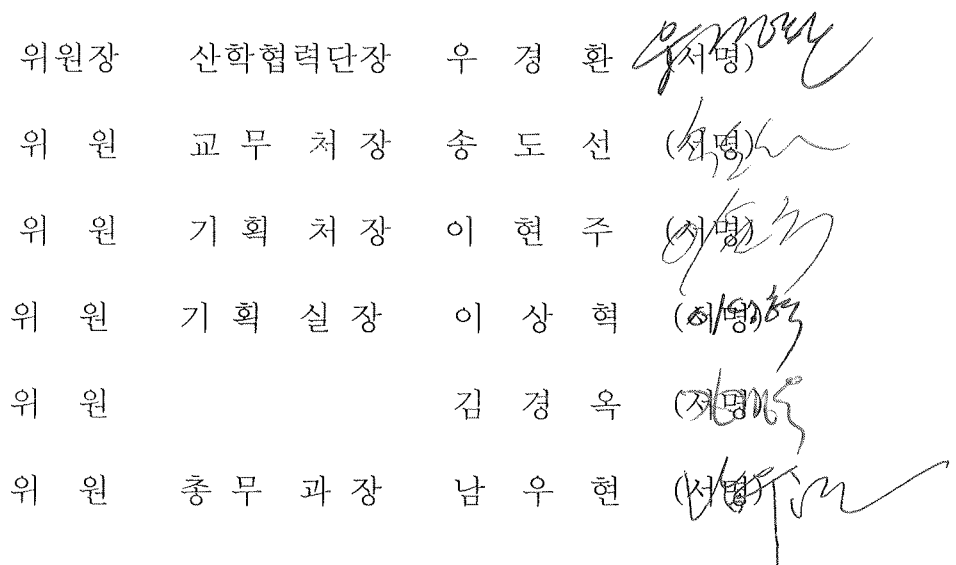 위원장 산학협력단장 우 경 환 (서명)
위 원 교 무 처 장 송 도 선 (서명)
위 원 기 획 처 장 이 현 주 (서명)
위 원 기 획 실 장 이 상 혁 (서명)
위 원 김 경 옥 (서명)
위 원 총 무 과 장 남 우 현 (서명)